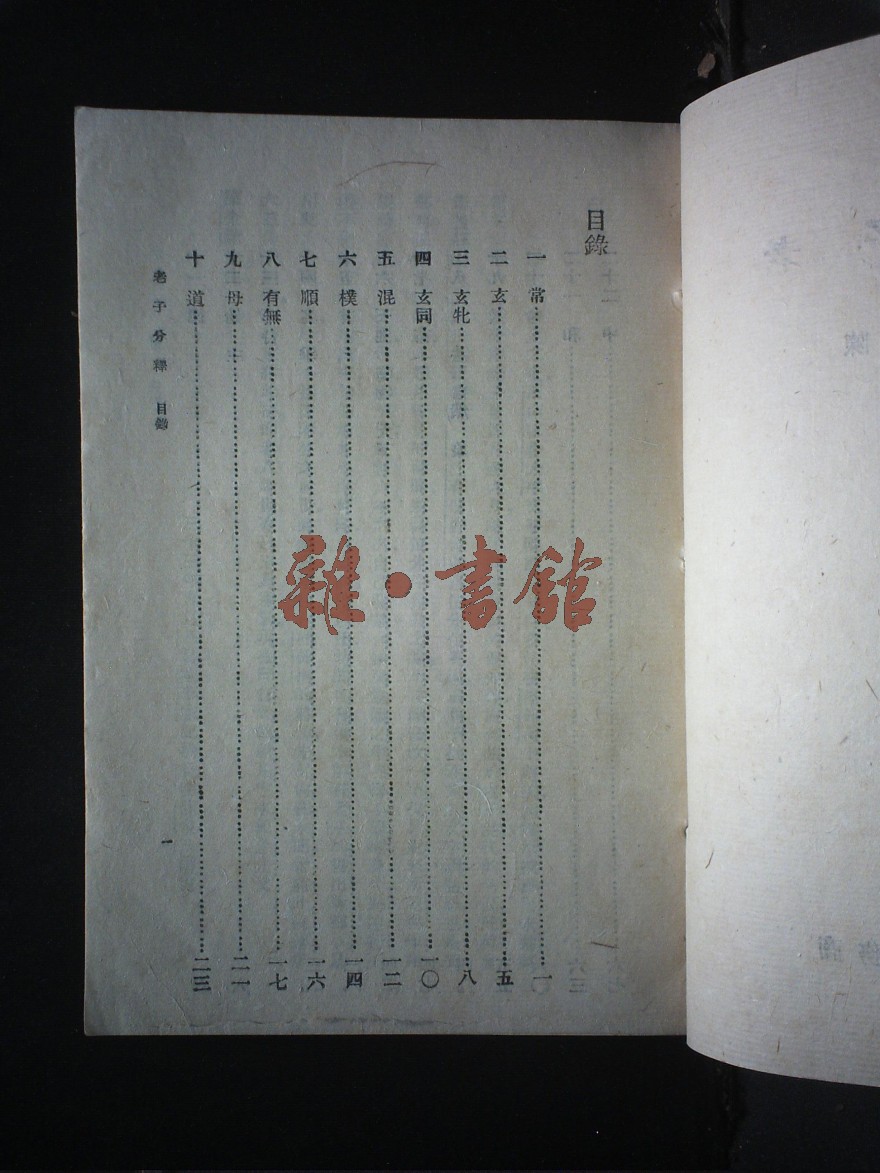 目錄
一 常…………一
二 玄…………五
三 玄牝…………八
四 玄同…………一〇
五 混…………一二
六 樸…………一四
七 順…………一六
八 有無…………一七
九 母…………二一
十 道…………二三
老子分釋 目錄
一
雜·書館